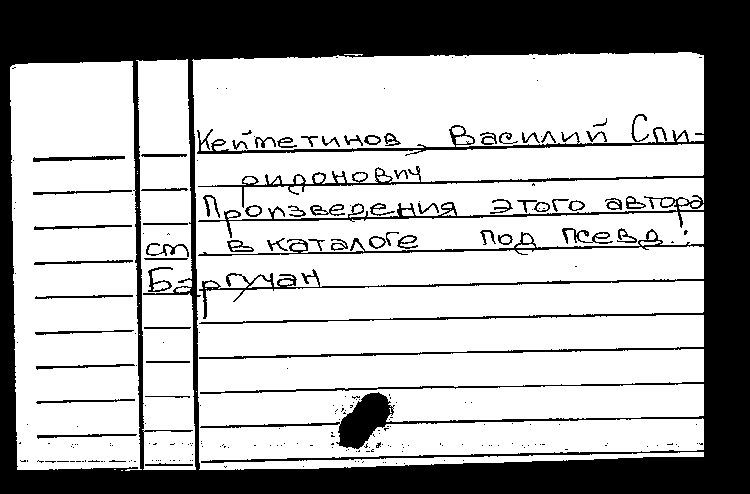 Кейметинов, Василий Спи-
ридонович
Произведения этого автора
см. в каталоге под псевд.:
Баргучан